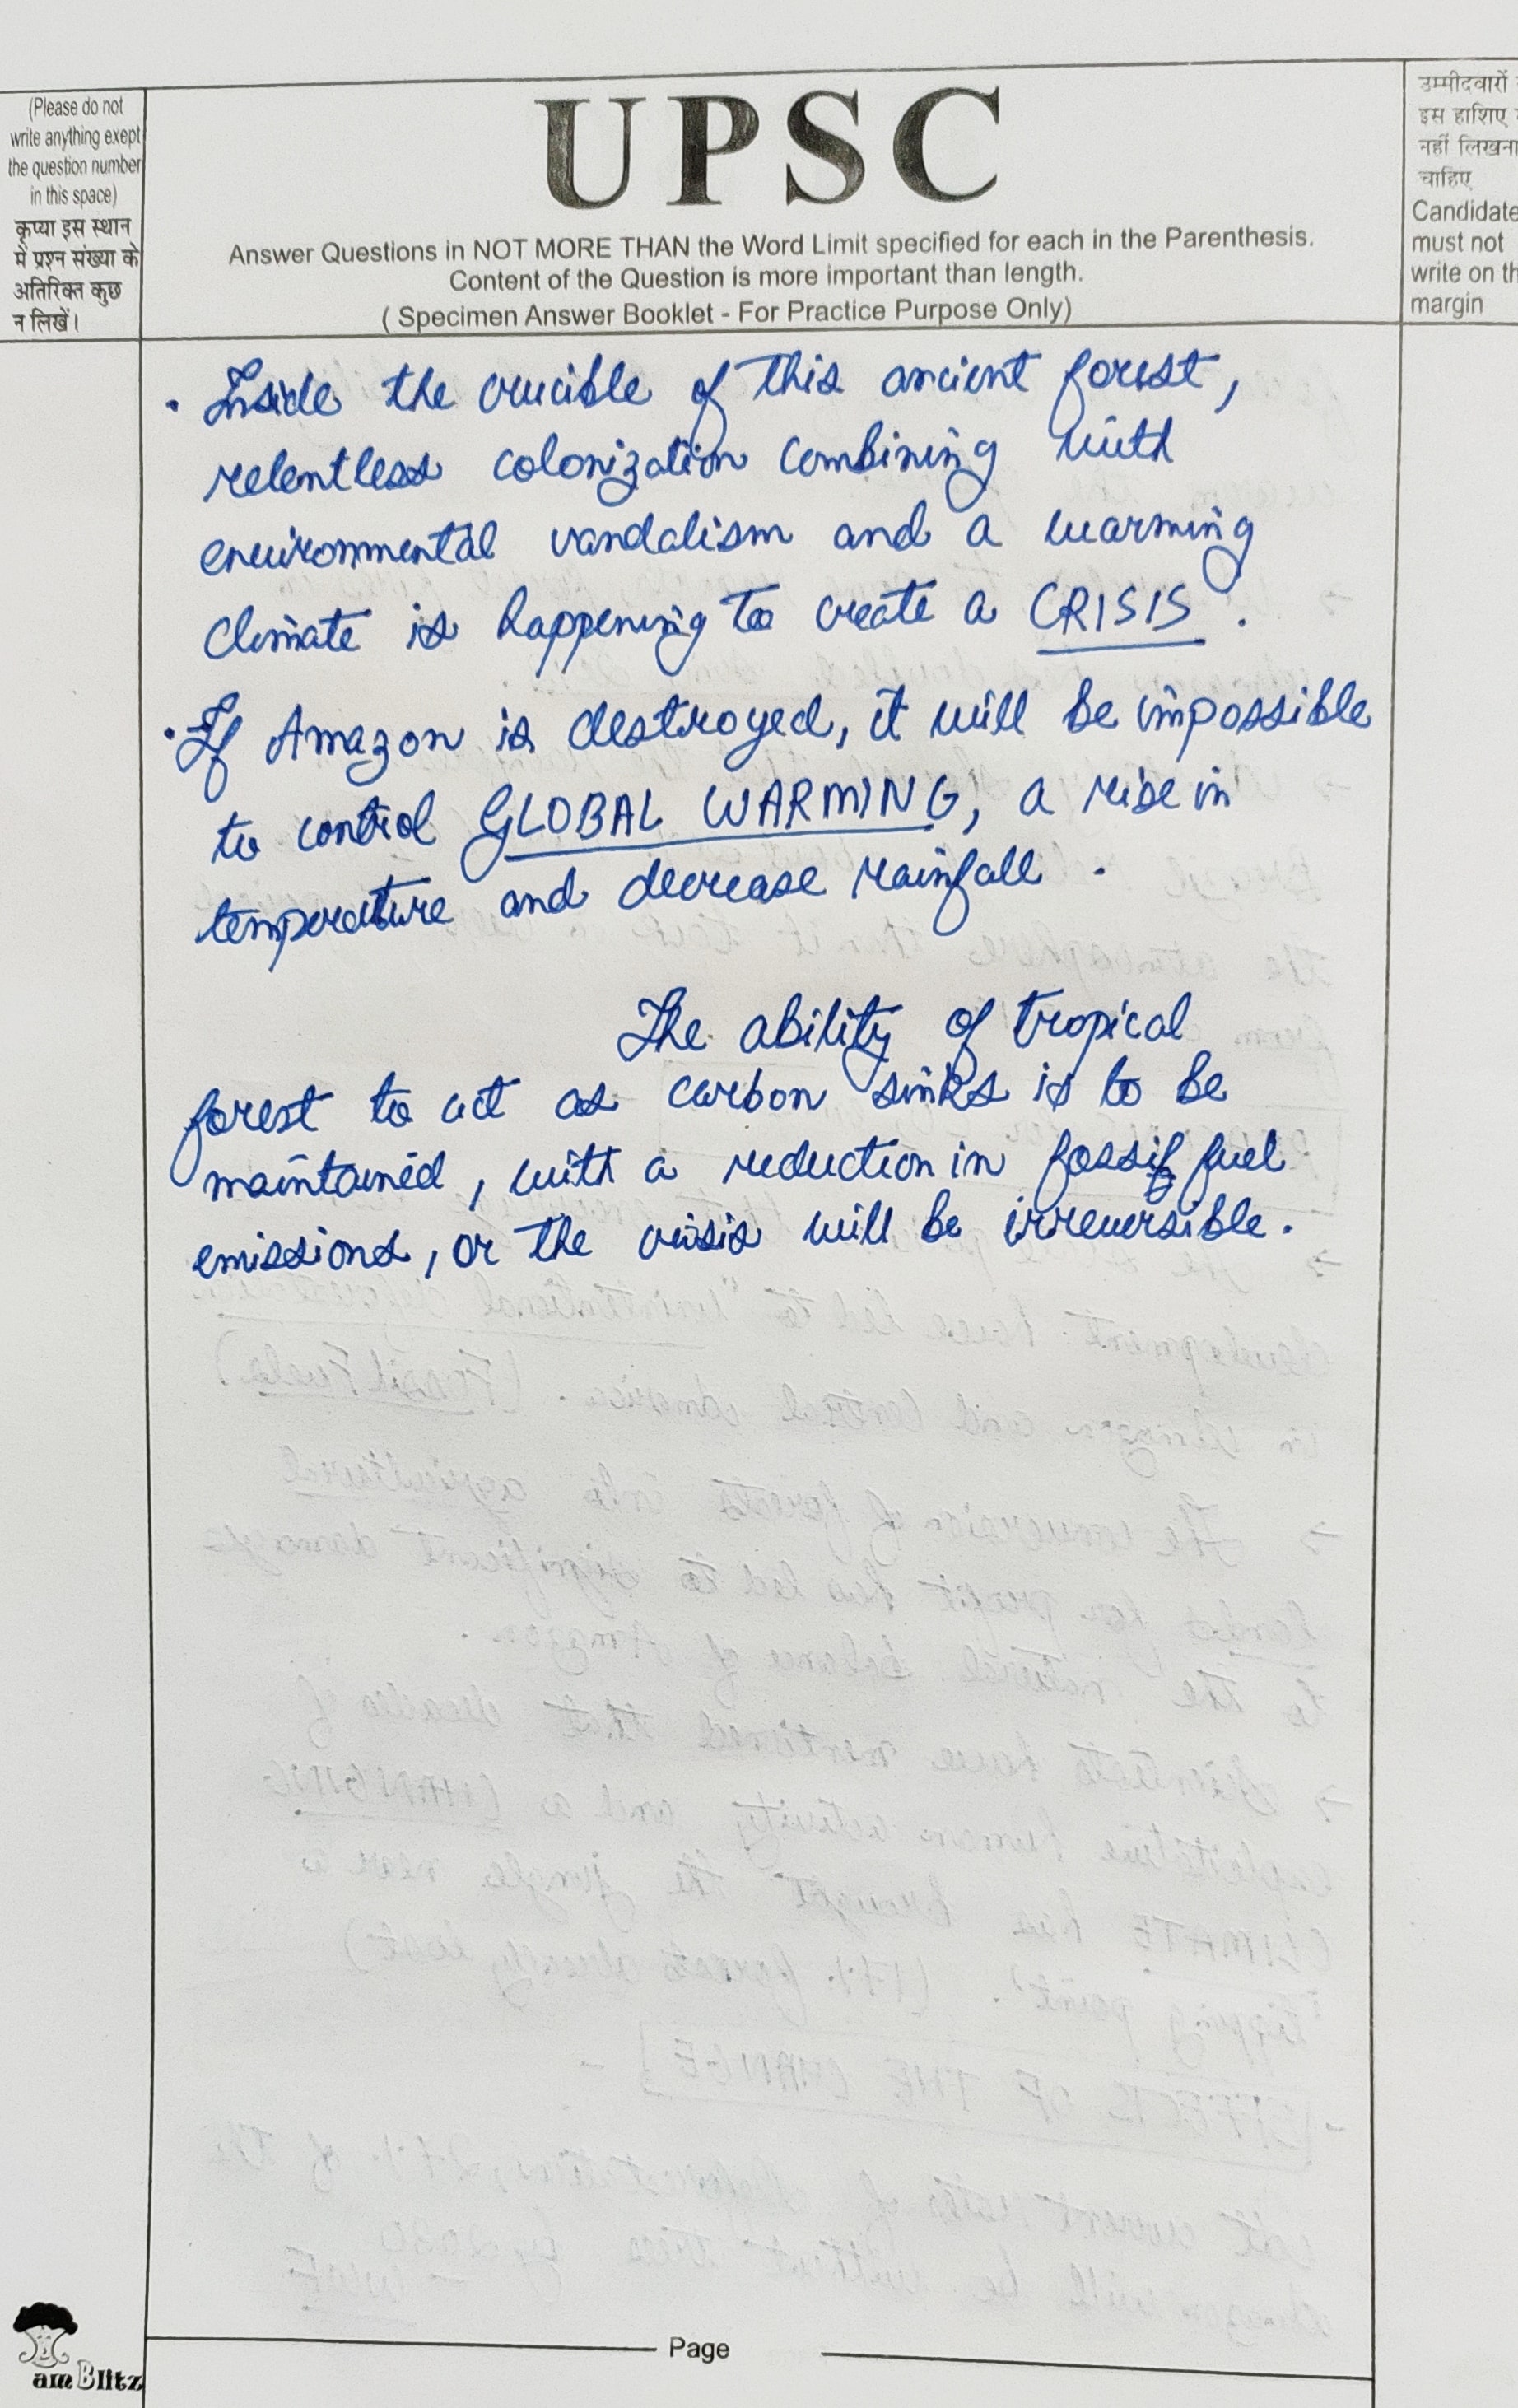 (Please do not
write anything exept
the question number
in this space)
कृप्या इस स्थान
में प्रश्न संख्या के
अतिरिक्त कुछ
न लिखें।
UPSC
Answer Questions in NOT MORE THAN the Word Limit specified for each in the Parenthesis.
Content of the Question is more important than length.
( Specimen Answer Booklet - For Practice Purpose Only)
उम्मीदवारों
इस हाशिए
नहीं लिखना
चाहिए
Candidate
must not
write on th
margin
• Inside the crucible of this ancient forest,
relentless colonization combining with
environmental vandalism and a warming
climate is happening to create a CRISIS.
• If Amazon is destroyed, it will be impossible
to control GLOBAL WARMING, a rise in
temperature and decrease rainfall.
The ability of tropical
forest to act as carbon sinks is to be
maintained, with a reduction in fossil fuel
emissions, or the crisis will be irreversible.
Page
am Blitz